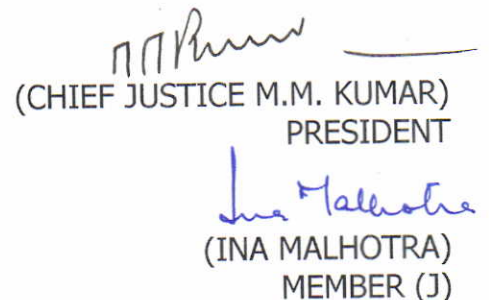 MMKumar
(CHIEF JUSTICE M.M. KUMAR)
PRESIDENT
Ina Malhotra
(INA MALHOTRA)
MEMBER (J)